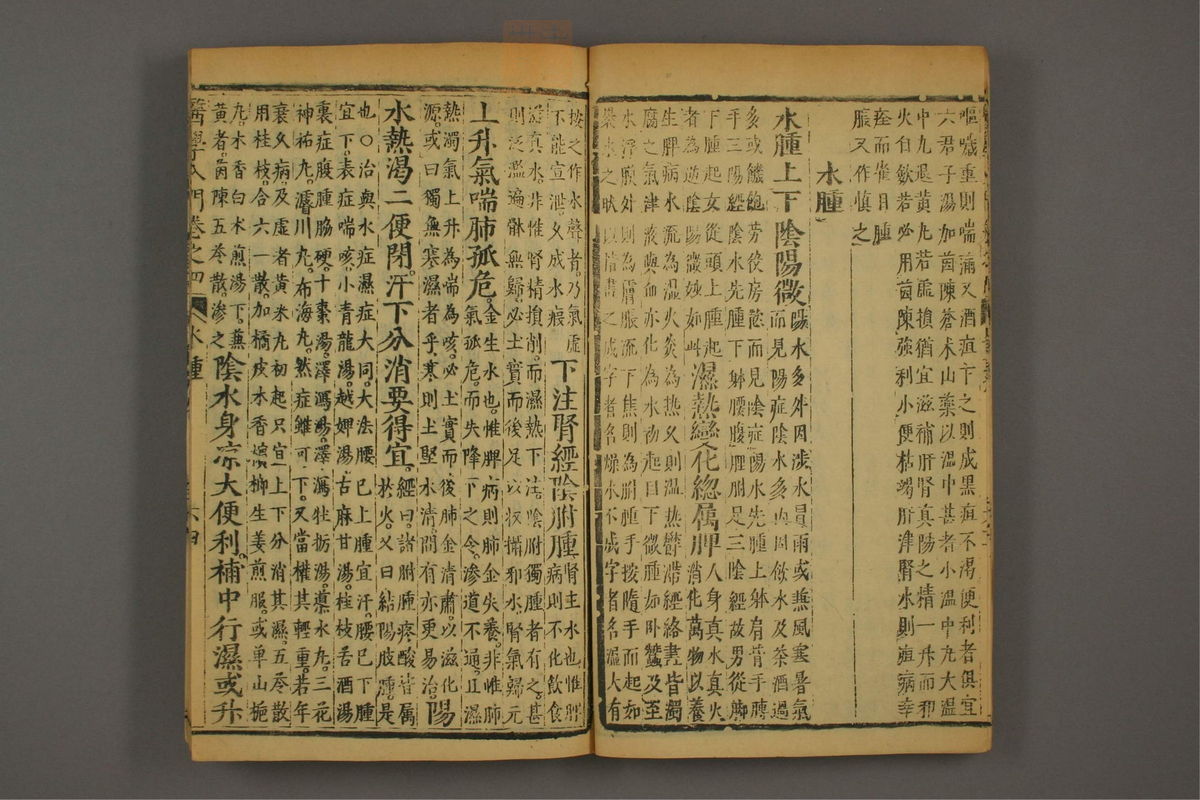 嘔噦重則喘滿又酒疸下之則成黑疸不渴便利者俱宜
六君子湯加茵陳蒼朮山藥以溫中甚者小溫中丸大溫
中丸退黃丸若虛損猶宜滋補肝腎真陽之精一升而邪
火自斂若必用茵陳強利小便枯竭肝津腎水則疸病幸
痊而雀目腫
脹又作慎之
水腫
水腫上下陰陽微
陽水多外因涉水冒雨或兼風寒暑氣
而見陽症陰水多內因飲水及茶酒過
多或饑飽勞役房慾而見陰症陽水先腫上躰肩背手膊
手三陽經陰水先腫下躰腰腹脛胕足三陰經故男從脚
下腫起女從頭上腫起
者為逆陰陽微妙如此
濕熱變化總屬脾
人身真水真火
消化萬物以養
生脾病水流為濕火炎為熱久則濕熱鬱滯經絡盡皆濁
腐之氣津液與血亦化為水初起目下微腫如卧蠶及至
水浮膜外則為膚脹流下焦則為胕腫手按隨手而起如
裹水之狀以指畫之成字者名燥水不成字者名濕大有
按之作水聲者乃氣虛
不能宣泄久成水瘕
下注腎經陰胕腫
腎主水也惟脾
病則不化飲食
滋真水非惟腎精損削而濕熱下注陰胕獨腫者有之甚
則泛濫遍骸無歸必土實而後足以収攝邪水腎氣歸元
上升氣喘肺孤危
金生水也惟脾病則肺金失養非惟肺
氣孤危而失降下之令滲道不通且濕
熱濁氣上升為喘為咳必土實而後肺金清肅以滋化
源或曰獨無寒濕者乎寒則土堅水清間有亦更易治
陽
水熱渴二便閉汗下分消要得宜
經曰諸胕腫疼酸皆屬
於火又曰結陽肢腫是
也○治與水症濕症大同大法腰已上腫宜汗腰已下腫
宜下表症喘咳小青龍湯越婢湯古麻甘湯桂枝舌酒湯
裏症腹腫脇硬十棗湯澤瀉湯澤瀉牡蠣湯藥水丸三花
神祐丸濬川丸布海丸然症雖可下又當權其輕重若年
衰久病及虛者黃米丸初起只宜上下分消其濕五苓散
用桂枝合六一散加橘皮木香檳榔生姜煎服或單山梔
丸木香白朮煎湯下兼
黃者茵陳五苓散滲之
陰水身凉大便利補中行濕或升
醫學入門卷之四
水腫